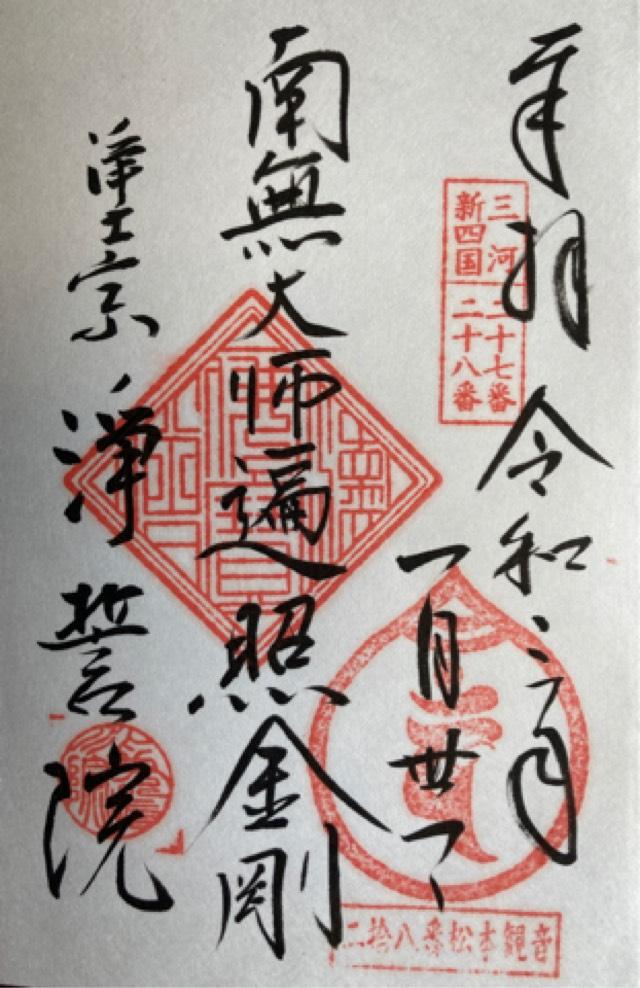 奉拝 令和三年
三河 二十七番
新四国 二十八番
一月
南無大師遍照金剛
浄土宗 浄誓院
二拾八番松本観音